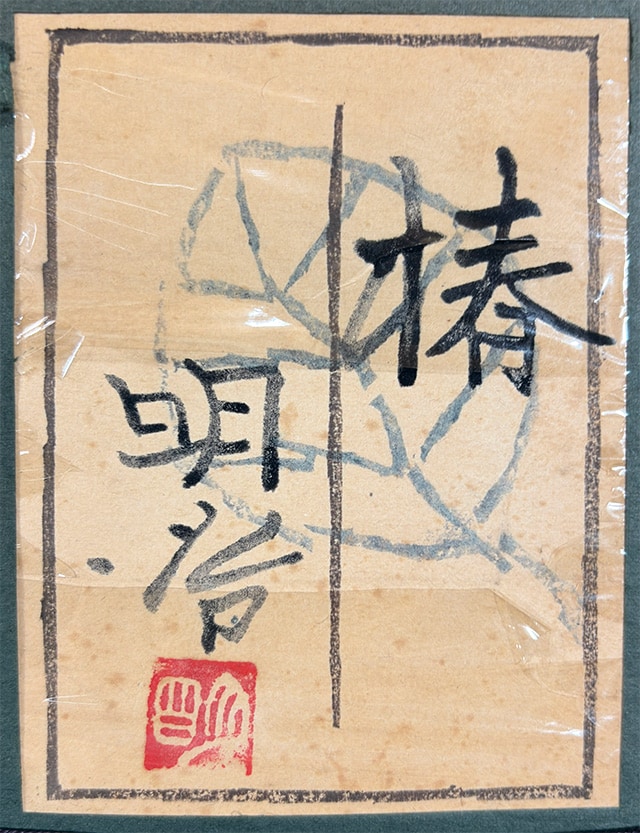 椿
明治